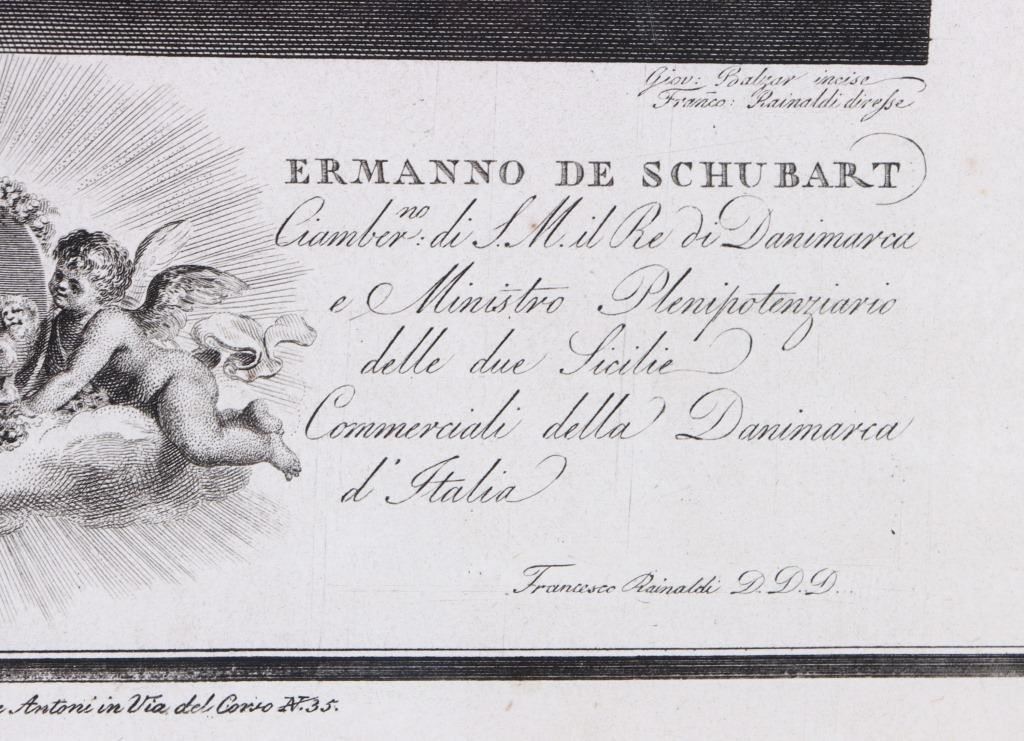 Giov: Balzar incise
Franco: Rainaldi diresse
ERMANNO DE SCHUBART
Ciamber.no: di S. M. il Re di Danimarca
e Ministro Plenipotenziario
delle due Sicilie
Commerciali della Danimarca
d'Italia
Francesco Rainaldi D. D. D.
Antoni in Via del Corso N.35.